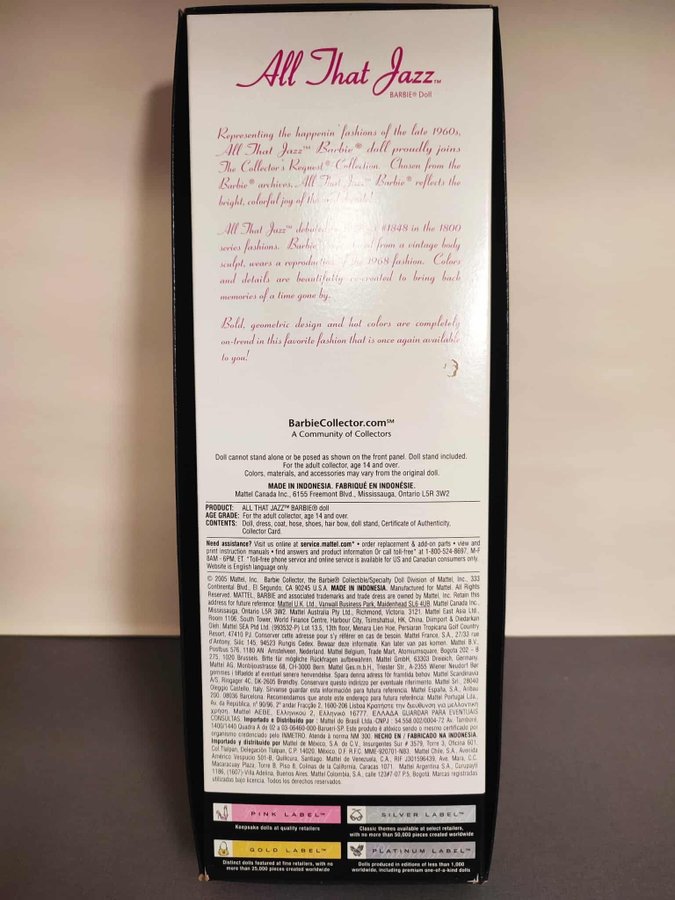 All That Jazz™
BARBIE® Doll
Representing the happenin' fashions of the late 1960s,
All That Jazz™ Barbie® doll proudly joins
The Collector's Request® Collection. Chosen from the
Barbie® archives, All That Jazz™ Barbie® reflects the
bright, colorful joy of the
All That Jazz™ #1848 in the 1800
series fashions. from a vintage body
sculpt, wears a 1968 fashion. Colors
and details are beautifully to bring back
memories of a time gone by.
Bold, geometric design and hot colors are completely
on-trend in this favorite fashion that is once again available
to you!
BarbieCollector.com℠
A Community of Collectors
Doll cannot stand alone or be posed as shown on the front panel. Doll stand included.
For the adult collector, age 14 and over.
Colors, materials, and accessories may vary from the original doll.
MADE IN INDONESIA. FABRIQUÉ EN INDONÉSIE.
Mattel Canada Inc., 6155 Freemont Blvd., Mississauga, Ontario L5R 3W2
PRODUCT: ALL THAT JAZZ™ BARBIE® doll
AGE GRADE: For the adult collector, age 14 and over.
CONTENTS: Doll, dress, coat, hose, shoes, hair bow, doll stand, Certificate of Authenticity,
Collector Card.
Need assistance? Visit us online at service.mattel.com* • order replacement & add-on parts • view and
print instruction manuals • find answers and product information Or call toll-free* at 1-800-524-8697, M-F
8AM - 6PM, ET. *Toll-free phone service and online service is available for US and Canadian consumers only.
Website is English language only.
© 2005 Mattel, Inc. Barbie Collector, the Barbie® Collectible/Specialty Doll Division of Mattel, Inc., 333
Continental Blvd., El Segundo, CA 90245 U.S.A. MADE IN INDONESIA. Manufactured for Mattel. All Rights
Reserved. MATTEL, BARBIE and associated trademarks and trade dress are owned by Mattel, Inc. Retain this
address for future reference: Mattel U.K. Ltd., Vanwall Business Park, Maidenhead SL6 4UB. Mattel Canada Inc.,
Mississauga, Ontario L5R 3W2. Mattel Australia Pty Ltd., Richmond, Victoria. 3121. Mattel East Asia Ltd.,
Room 1106, South Tower, World Finance Centre, Harbour City, Tsimshatsui, HK, China. Diimport & Diedarkan
Oleh: Mattel SEA Ptd Ltd. (993532-P) Lot 13.5, 13th floor, Menara Lien Hoe, Persiaran Tropicana Golf Country
Resort, 47410 PJ. Conserver cette adresse pour s'y référer en cas de besoin. Mattel France, S.A., 27/33 rue
d'Antony, Silic 145, 94523 Rungis Cedex. Bewaar deze informatie. Kan later van pas komen. Mattel B.V.,
Postbus 576, 1180 AN Amstelveen, Nederland. Mattel Belgium, Trade Mart, Atomiumsquare, Bogota 202 - B
275, 1020 Brussels. Bitte für mögliche Rückfragen aufbewahren. Mattel GmbH, 63303 Dreieich, Germany.
Mattel AG, Monbijoustrasse 68, CH-3000 Bern. Mattel Ges.m.b.H., Triester Str., A-2355 Wiener Neudorf
A/S, Ringager 4C, DK-2605 Brøndby. Mattel Srl., 28040
Oleggio Castello, Italy. Mattel España, S.A., Aribau
200. 08036 Barcelona. Mattel Portugal Lda.,
Av. da República, nº 90/96, 2º andar Fracção 2, 1600-206 Lisboa
CONSULTAS. Importado e Distribuido por: Mattel do Brasil Ltda.
HECHO EN / FABRICADO NA INDONESIA.
Importado y distribuido por Mattel de México, S.A. de C.V., Insurgentes Sur # 3579, Torre 3, Oficina 601,
Col Tlalpan, Delegación Tlalpan, C.P. 14020, México, D.F. Mattel Chile, S.A., Avenida
Américo Vespucio 501-B, Quilicura, Santiago. Mattel de Venezuela, C.A.,
Macaracuay Plaza, Torre B, Piso 8, Colinas de la California, Caracas 1071. Mattel Argentina S.A., Curupaytí
1186, (1607)-Villa Adelina, Buenos Aires. Mattel Colombia, S.A., calle 123#7-07 P.5, Bogotá. Marcas registradas
utilizados bajo licencia. Todos los derechos reservados.
PINK LABEL™
Keepsake dolls at quality retailers
SILVER LABEL™
Classic themes available at select retailers,
with no more than 50,000 pieces created worldwide
GOLD LABEL™
Distinct dolls featured at fine retailers, with no
more than 25,000 pieces created worldwide
PLATINUM LABEL™
Dolls produced in editions of less than 1,000
worldwide, including premium one-of-a-kind dolls